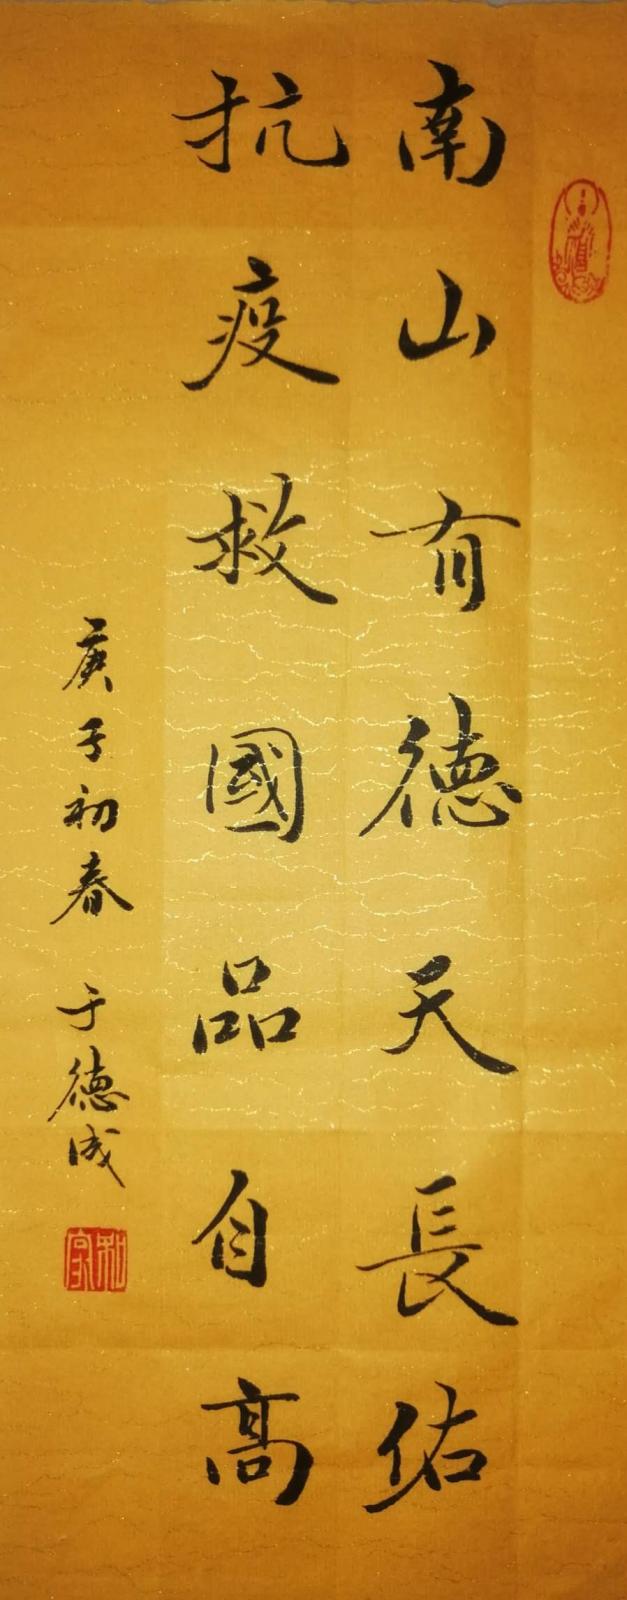 南山有德天長佑
抗疫救國品自高
庚子初春 于德成